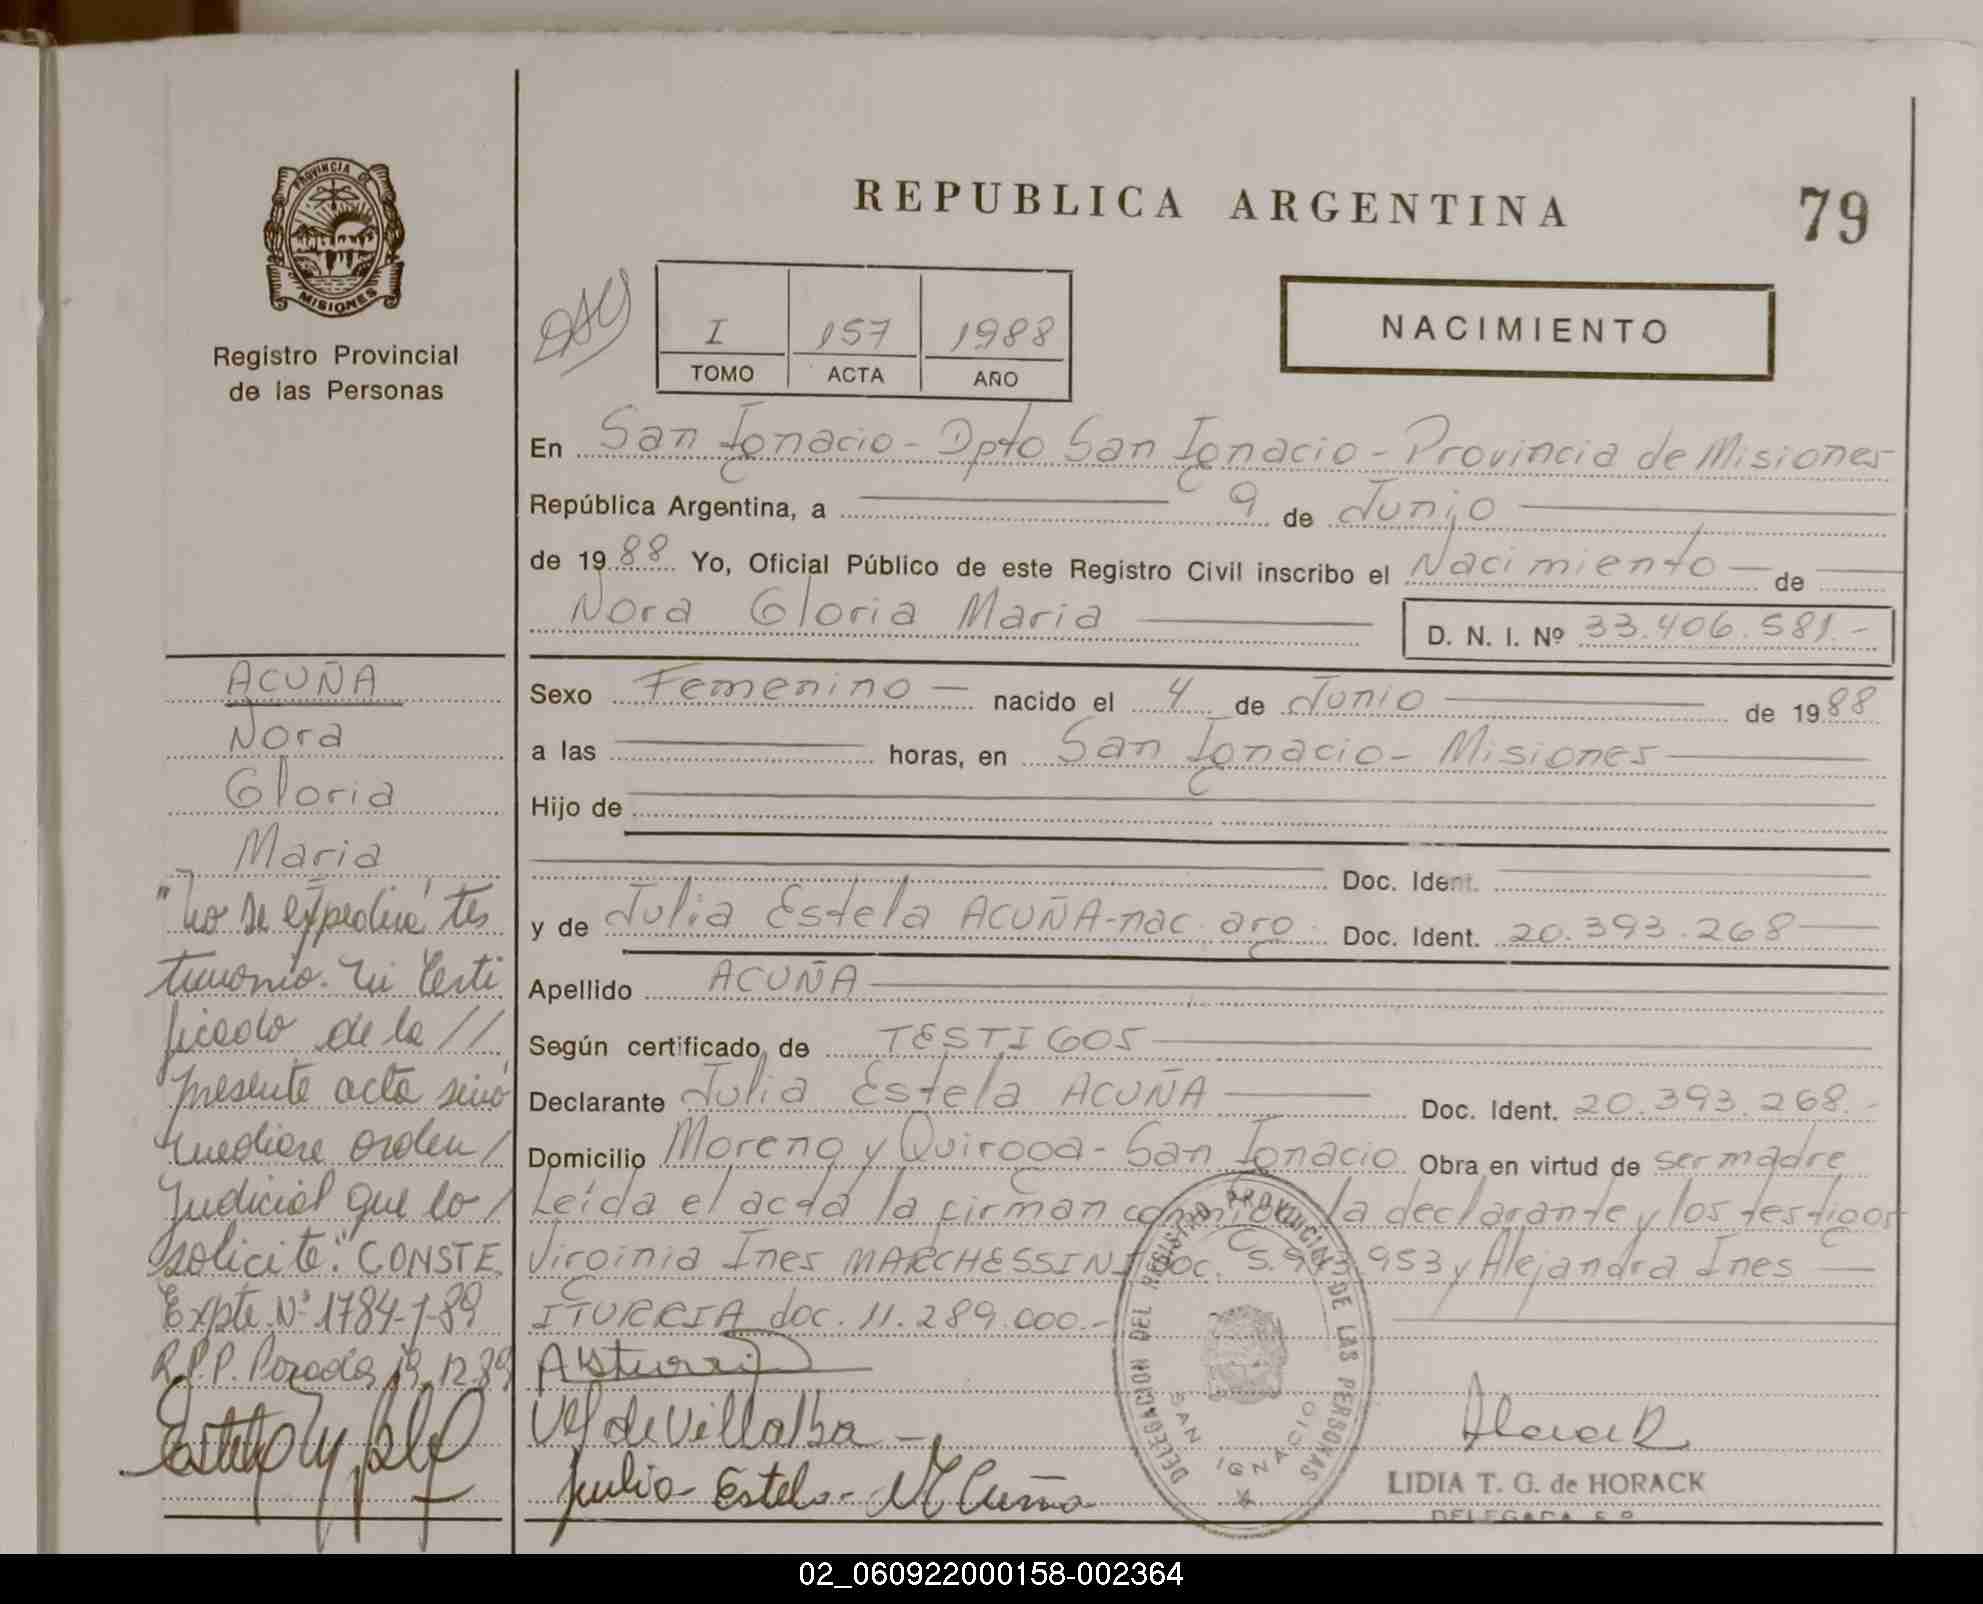 PROVINCIA DE
MISIONES
Registro Provincial
de las Personas
REPUBLICA ARGENTINA
79
I 157 1988
TOMO ACTA AÑO
NACIMIENTO
En San Ignacio - Dpto San Ignacio - Provincia de Misiones
República Argentina, a 9 de Junio
de 1988 Yo, Oficial Público de este Registro Civil inscribo el Nacimiento de
Nora Gloria Maria
D. N. I. Nº 33.406.581.-
Sexo Femenino nacido el 4 de Junio de 1988
a las horas, en San Ignacio - Misiones
Hijo de
Doc. Ident.
y de Julia Estela ACUÑA-nac. arg. Doc. Ident. 20.393.268
Apellido ACUÑA
Según certificado de TESTIGOS
Declarante Julia Estela ACUÑA Doc. Ident. 20.393.268.-
Domicilio Moreno y Quiroga - San Ignacio Obra en virtud de ser madre
Leída el acta la firman conmigo la declarante y los testigos
Virginia Ines MARCHESSINI Doc. 5.993.953 y Alejandra Ines
ITURRIA doc. 11.289.000.-
V M de Villalba
Julia - Estela - Acuña
DELEGACION DEL REGISTRO PROVINCIAL DE LAS PERSONAS
SAN IGNACIO
LIDIA T. G. de HORACK
DELEGADA S.R.
ACUÑA
Nora
Gloria
Maria
"No se expedirá tes
timonio. ni Certi
ficado de la //
presente acta sinó
mediare orden /
Judicial que lo /
solicite". CONSTE
Expte. Nº 1784-J-89
R.P.P. Posadas, 19.12.89
02_060922000158-002364